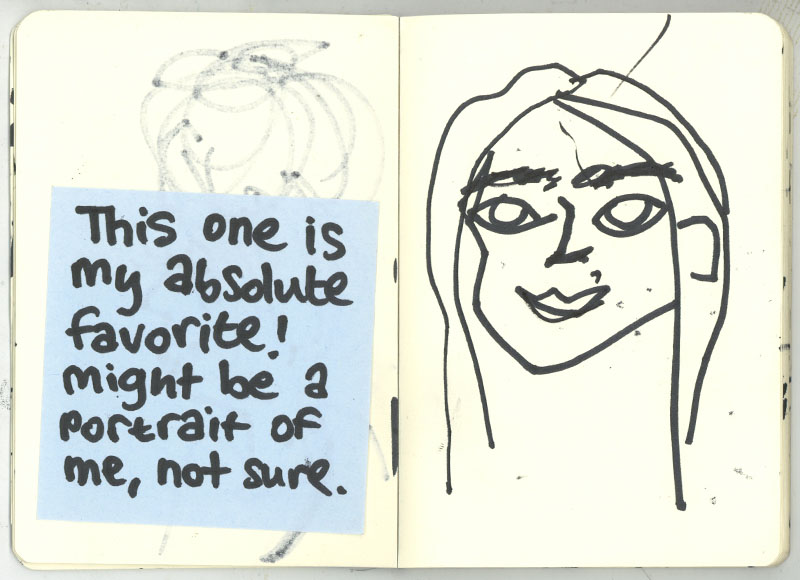 This one is
my absolute
favorite!
might be a
portrait of
me, not sure.